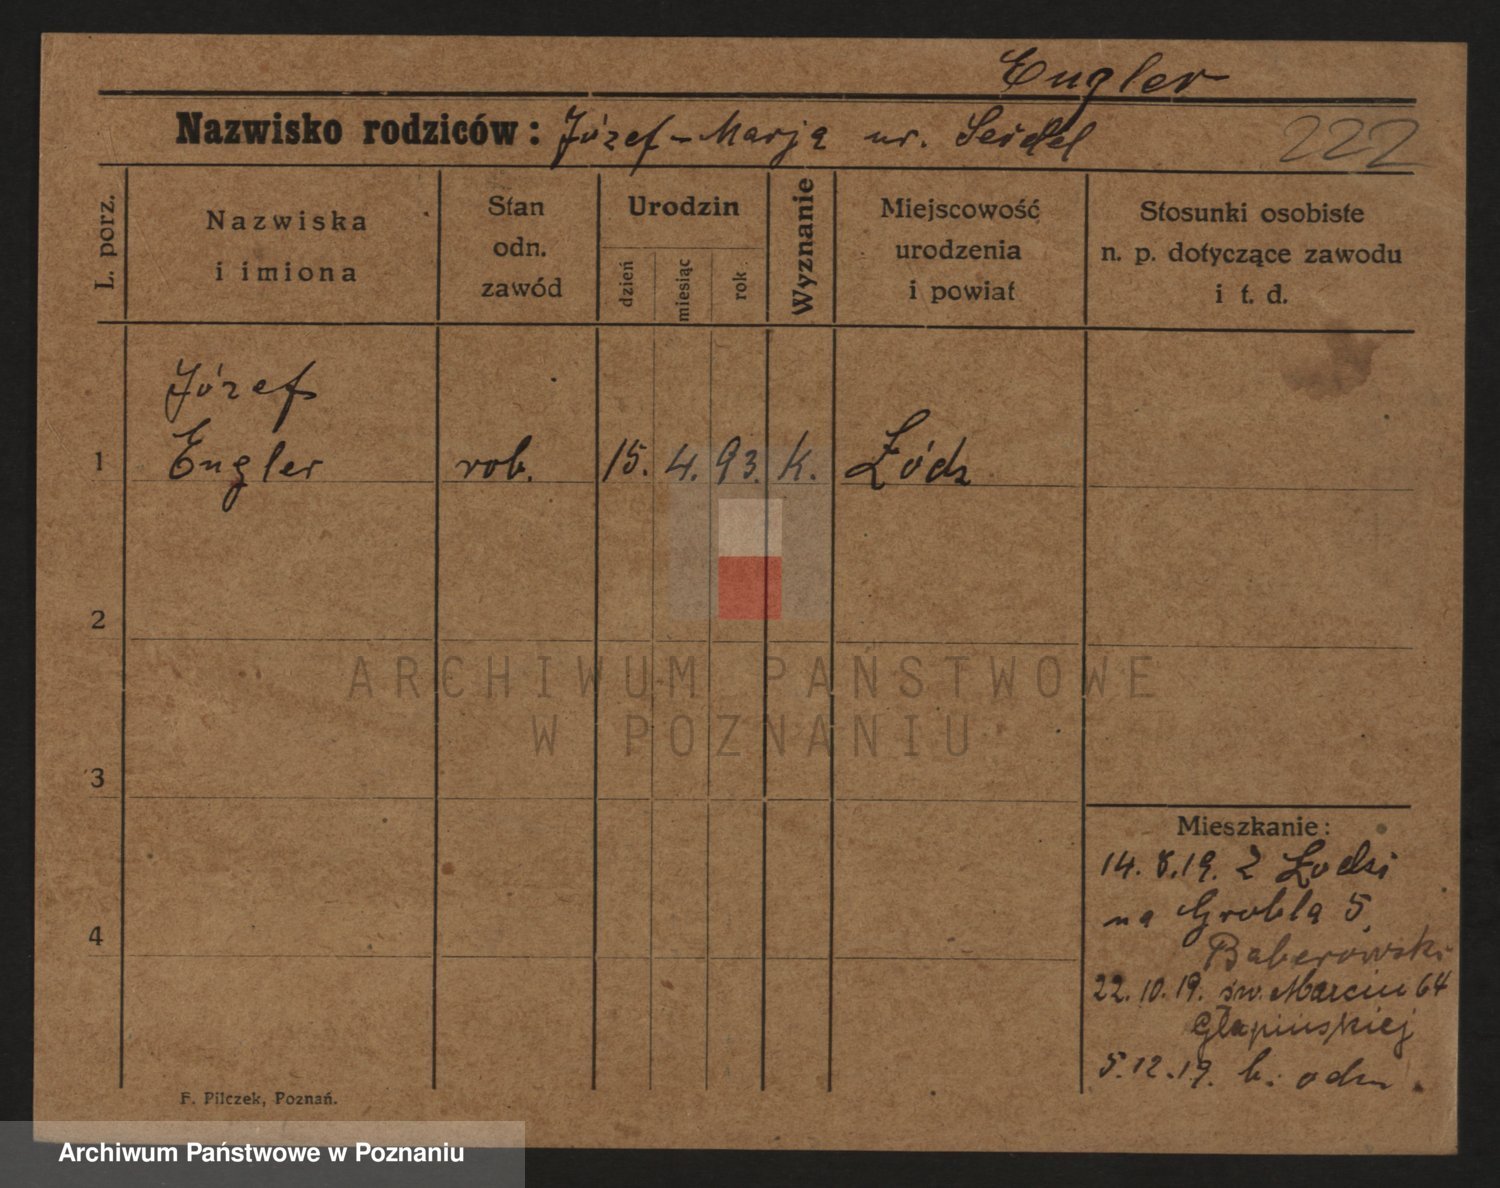 Engler
Nazwisko rodziców: Józef - Marja ur. Seidel
222
L. porz.
Nazwiska
i imiona
Stan
odn.
zawód
Urodzin
dzień
miesiąc
rok
Wyznanie
Miejscowość
urodzenia
i powiat
Stosunki osobiste
n. p. dotyczące zawodu
i t. d.
Józef
1 Engler rob. 15. 4. 93. k. Łódz
2
3
4
Mieszkanie:
14. 8.19. z Łodzi
na Grobla 5
Baberowski
22. 10. 19. św. Marcin 64
Głapińskiej
5.12.19. b. odm.
F. Pilczek, Poznań.
ARCHIWUM PAŃSTWOWE
W POZNANIU
Archiwum Państwowe w Poznaniu